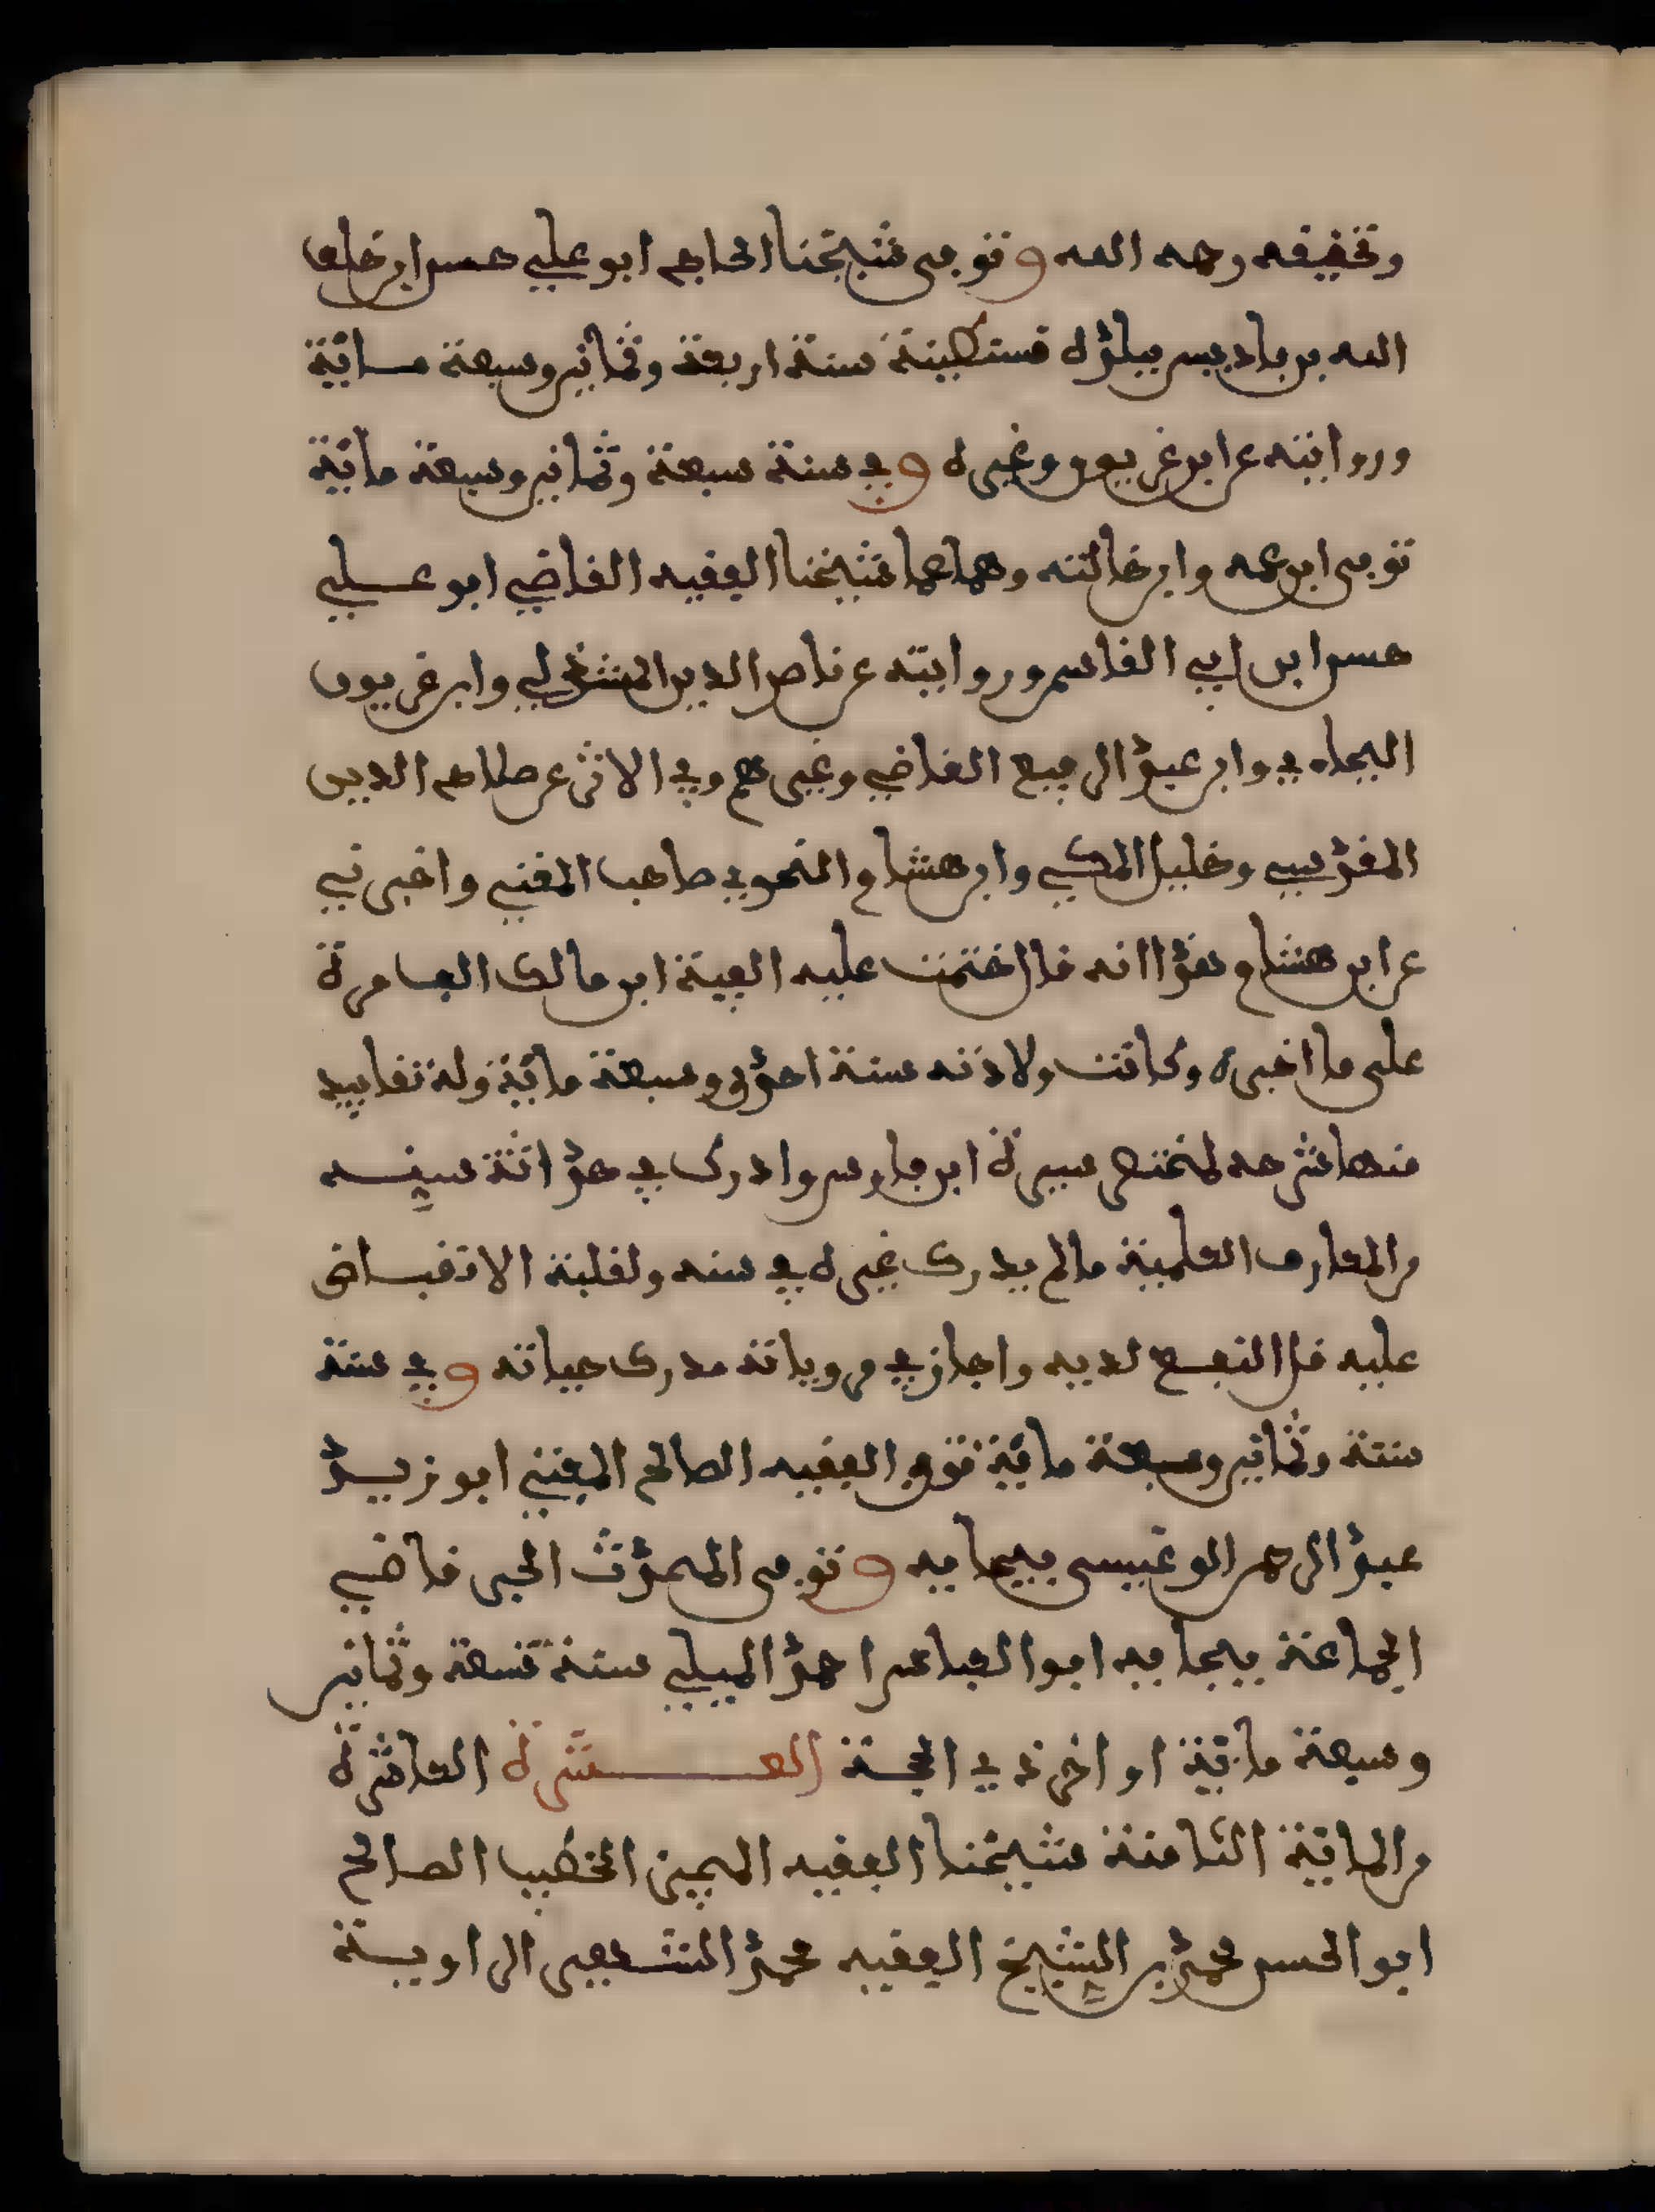 وتخفيفه رحمه الله وتوفي شيخنا الحاج ابو علي حسن ابن خلف
الله بن باديس ببلده قسنطينة سنة اربعة وثمانين وسبعة مائة
وروايته عن ابن غريون وغيره وفي سنة سبعة وثمانين وسبعة مائة
توفي ابن عمه وابن خالته وهما هما شيخنا الفقيه القاضي ابو علي
حسن ابن ابي القاسم وروايته عن ناصر الدين المشذالي وابن غريون
البجاءي وابن عبد الرفيع القاضي وغيرهم وفي الاثر عن صلاح الدين
المقدسي وخليل المكي وابن هشام النحوي صاحب المغني واخبرني
عن ابن هشام هذا انه قال ختمت عليه الفية ابن مالك الف مرة
على ما اخبره وكانت ولادته سنة احدى وسبعة مائة وله تقاييد
منها شرحه لمختصر سيرة ابن فارس وادرك في حداثة سنه
من المعارف العلمية ما لم يدرك غيره في سنه ولغلبة الانقباض
عليه قل النفع لديه واجازني مروياته مدرك حياته وفي سنة
ستة وثمانين وسبعة مائة توفي الفقيه الصالح المفتي ابو زيد
عبد الرحمن الوغليسي ببجاية وتوفي المحدث الخير قاضي
الجماعة ببجاية ابو العباس احمد الميلي سنة تسعة وثمانين
وسبعة مائة او اخر ذي الحجة العشرة العاشرة
من المائة الثامنة شيخنا الفقيه المفتي الخطيب الصالح
ابو الحسن محمد بن الشيخ الفقيه محمد الشهير الراوية